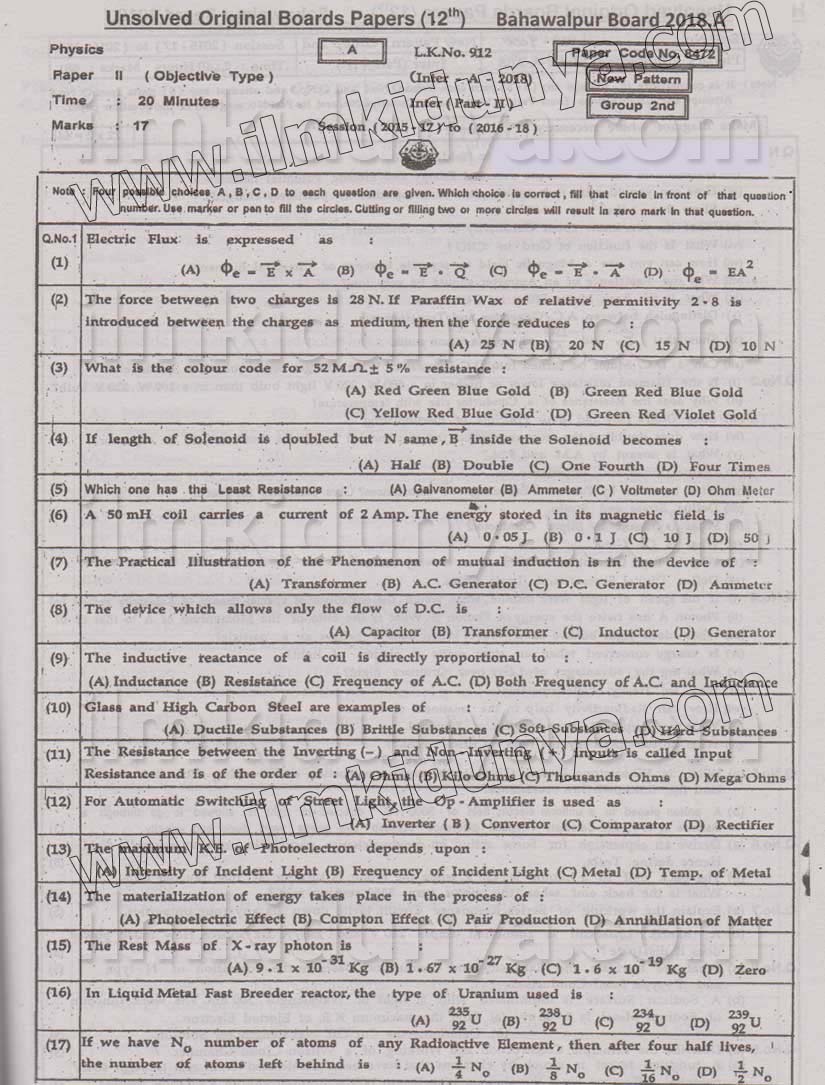 Unsolved Original Boards Papers (12th) Bahawalpur Board 2018,A
Physics A L.K.No. 912 Paper Code No. 8472
Paper II ( Objective Type ) (Inter - A - 2018) New Pattern
Time : 20 Minutes Inter (Part - II) Group 2nd
Marks : 17 Session (2015 - 17) to (2016 - 18)
Note : Four possible choices A, B, C, D to each question are given. Which choice is correct, fill that circle in front of that question
number. Use marker or pen to fill the circles. Cutting or filling two or more circles will result in zero mark in that question.
Q.No.1 Electric Flux is expressed as :
(1) (A) ϕe = E⃗ × A⃗ (B) ϕe = E⃗ · Q⃗ (C) ϕe = E⃗ · A⃗ (D) ϕe = EA²
(2) The force between two charges is 28 N. If Paraffin Wax of relative permitivity 2·8 is
introduced between the charges as medium, then the force reduces to :
(A) 25 N (B) 20 N (C) 15 N (D) 10 N
(3) What is the colour code for 52 MΩ ± 5% resistance :
(A) Red Green Blue Gold (B) Green Red Blue Gold
(C) Yellow Red Blue Gold (D) Green Red Violet Gold
(4) If length of Solenoid is doubled but N same, B⃗ inside the Solenoid becomes :
(A) Half (B) Double (C) One Fourth (D) Four Times
(5) Which one has the Least Resistance : (A) Galvanometer (B) Ammeter (C) Voltmeter (D) Ohm Meter
(6) A 50 mH coil carries a current of 2 Amp. The energy stored in its magnetic field is
(A) 0·05 J (B) 0·1 J (C) 10 J (D) 50 J
(7) The Practical Illustration of the Phenomenon of mutual induction is in the device of :
(A) Transformer (B) A.C. Generator (C) D.C. Generator (D) Ammeter
(8) The device which allows only the flow of D.C. is :
(A) Capacitor (B) Transformer (C) Inductor (D) Generator
(9) The inductive reactance of a coil is directly proportional to :
(A) Inductance (B) Resistance (C) Frequency of A.C. (D) Both Frequency of A.C. and Inductance
(10) Glass and High Carbon Steel are examples of :
(A) Ductile Substances (B) Brittle Substances (C) Soft Substances (D) Hard Substances
(11) The Resistance between the Inverting (−) and Non-Inverting (+) inputs is called Input
Resistance and is of the order of : (A) Ohms (B) Kilo Ohms (C) Thousands Ohms (D) Mega Ohms
(12) For Automatic Switching of Street Light, the Op-Amplifier is used as :
(A) Inverter (B) Convertor (C) Comparator (D) Rectifier
(13) The maximum K.E. of Photoelectron depends upon :
(A) Intensity of Incident Light (B) Frequency of Incident Light (C) Metal (D) Temp. of Metal
(14) The materialization of energy takes place in the process of :
(A) Photoelectric Effect (B) Compton Effect (C) Pair Production (D) Annihilation of Matter
(15) The Rest Mass of X-ray photon is :
(A) 9·1 x 10⁻³¹ Kg (B) 1·67 x 10⁻²⁷ Kg (C) 1·6 x 10⁻¹⁹ Kg (D) Zero
(16) In Liquid Metal Fast Breeder reactor, the type of Uranium used is :
(A) ²³⁵₉₂U (B) ²³⁸₉₂U (C) ²³⁴₉₂U (D) ²³⁹₉₂U
(17) If we have No number of atoms of any Radioactive Element, then after four half lives,
the number of atoms left behind is : (A) 1/4 No (B) 1/8 No (C) 1/16 No (D) 1/2 No
www.ilmkidunya.com
www.ilmkidunya.com
ilmkidunya.com
ilmkidunya.com
ilmkidunya.com
ilmkidunya.com
ilmkidunya.com
ilmkidunya.com